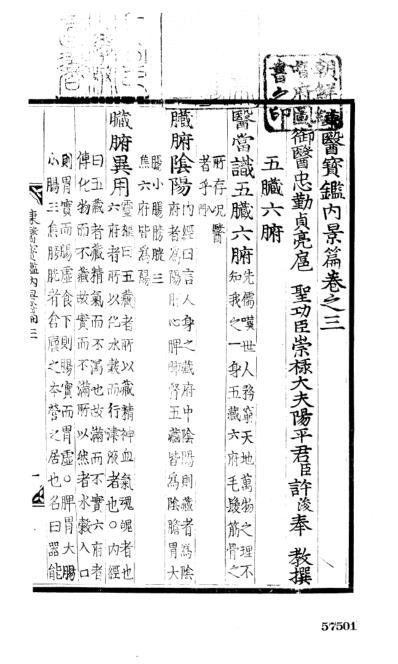 朝鮮總督府圖書之印
東醫寶鑑內景篇卷之三
御醫忠勤貞亮扈 聖功臣崇祿大夫陽平君臣許浚奉 教撰
五臟六腑
醫當識五臟六腑
先儒嘆世人務窮天地萬物之理不
知我之一身五藏六府毛髮筋骨之
所存况醫
者乎入門
臟腑陰陽
內經曰言人身之藏府中陰陽則藏者爲陰
府者爲陽肝心脾肺腎五藏皆爲陰膽胃大
腸小腸膀胱三
焦六府皆爲陽
臟腑異用
靈樞曰五藏者所以藏精神血氣魂魄者也
六府者所以化水穀而行津液者也○內經
曰五藏者藏精氣而不瀉也故滿而不實六府者
傳化物而不藏故實而不滿所以然者水穀入口
則胃實而腸虛食下則腸實而胃虛○脾胃大腸
小腸三焦膀胱者倉廩之本營之居也名曰器能
東醫寶鑑內景篇三
一
57501